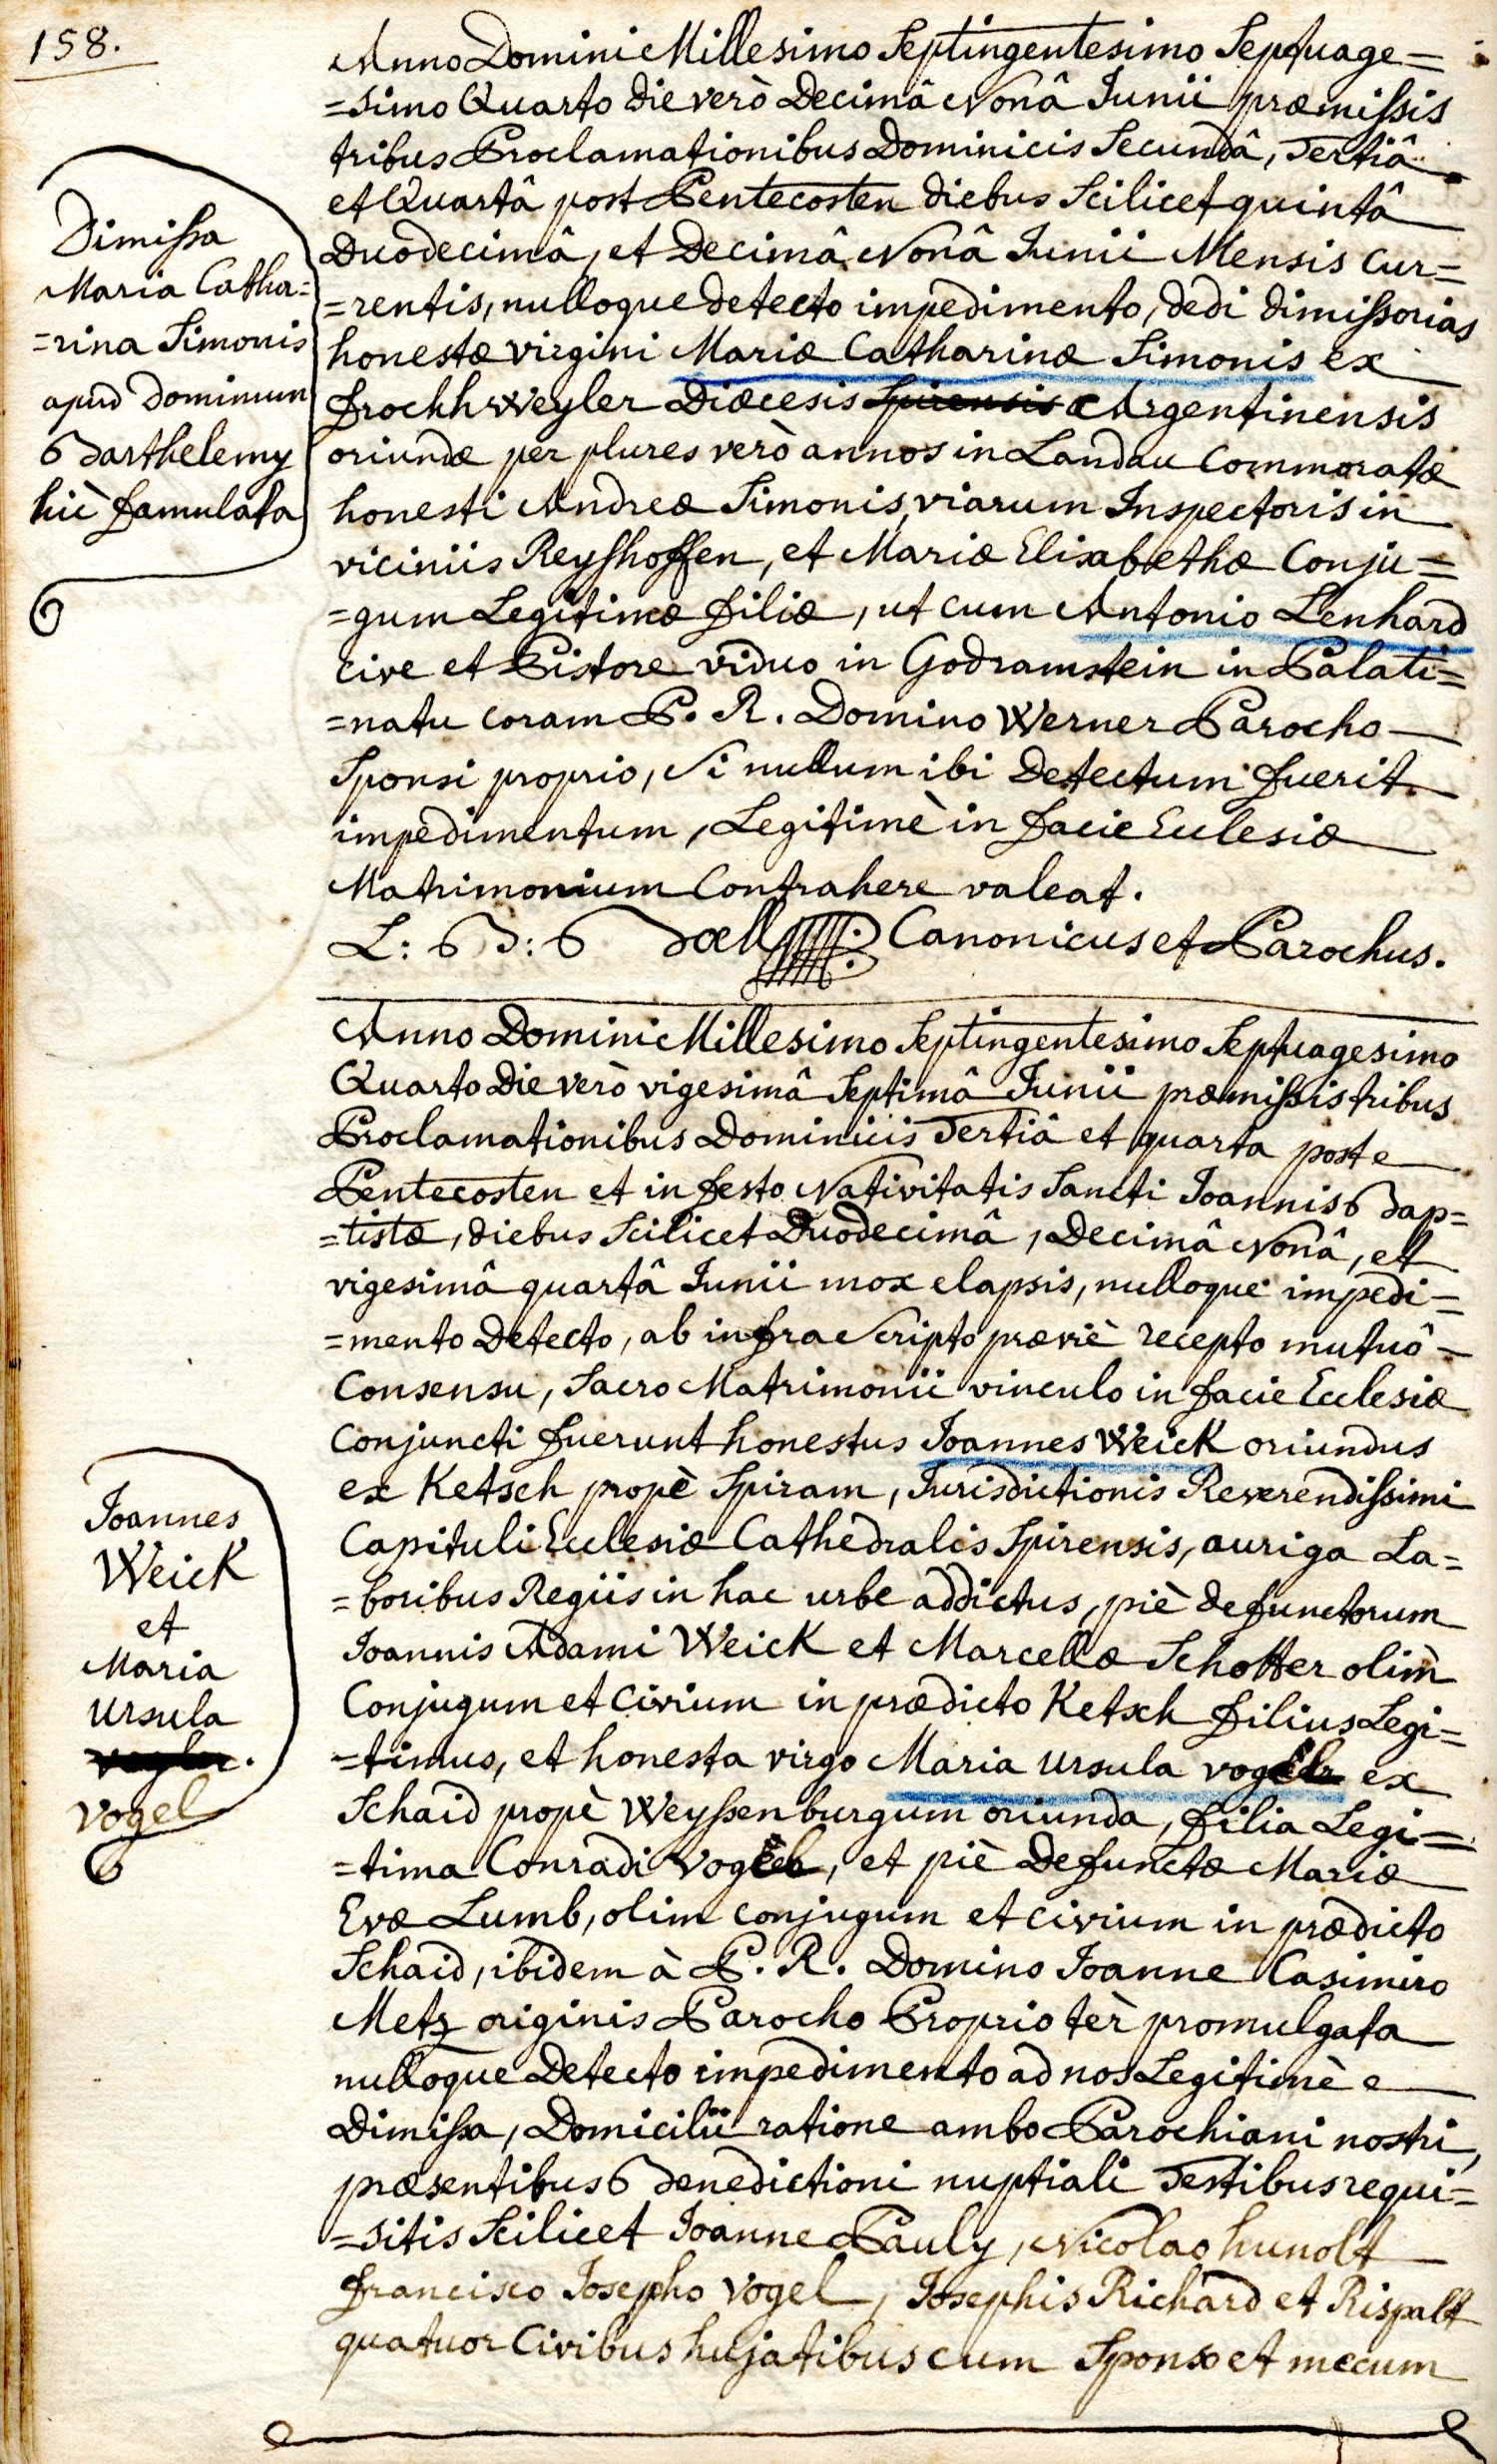 158.
Anno Domini Millesimo Septingentesimo Septuage=
=simo Quarto die verò Decimâ Nonâ Junii præmissis
tribus Proclamationibus Dominicis Secundâ, Tertiâ
et Quartâ post Pentecosten diebus Scilicet quintâ
Duodecimâ, et Decimâ Nonâ Junii Mensis Cur=
=rentis, nulloque detecto impedimento, dedi dimissorias
honestæ virgini Mariæ Catharinæ Simonis ex
Frochhweyler Diœcesis Spirensis Argentinensis
oriundæ per plures verò annos in Landau Commoratæ
honesti Andreæ Simonis, viarum Inspectoris in
viciniis Reyshoffen, et Mariæ Elisabethæ Conju=
=gum Legitimæ filiæ, ut cum Antonio Lenhard
Cive et Pistore viduo in Godramstein in Palati=
=natu coram P. R. Domino Werner Parocho
Sponsi proprio, Si nullum ibi Detectum fuerit
impedimentum, Legitimè in facie Ecclesiæ
Matrimonium Contrahere valeat.
L: B: Bœll Canonicus et Parochus.
Dimissa
Maria Catha=
=rina Simonis
apud Dominum
Barthelemy
hic famulata
Anno Domini Millesimo Septingentesimo Septuagesimo
Quarto Die verò vigesimâ Septimâ Junii præmissis tribus
Proclamationibus Dominicis Tertiâ et quarta post
Pentecosten et in festo Nativitatis Sancti Joannis Bap=
=tistæ, diebus Scilicet Duodecimâ, Decimâ Nonâ, et
vigesimâ quartâ Junii mox elapsis, nulloque impedi=
=mento Detecto, ab infra Scripto præviè recepto mutuô
Consensu, Sacro Matrimonii vinculo in facie Ecclesiæ
Conjuncti fuerunt honestus Joannes Weick oriundus
ex Ketsch propè Spiram, Jurisdictionis Reverendissimi
Capituli Ecclesiæ Cathedralis Spirensis, auriga La=
=boribus Regiis in hac urbe addictus, piè defunctorum
Joannis Adami Weick et Marcellæ Schotter olim
Conjugum et Civium in prædicto Ketsch filius Legi=
=timus, et honesta virgo Maria Ursula vogel ex
Schaid propè Weyssenburgum oriunda, filia Legi=
=tima Conradi vogel, et piè Defunctæ Mariæ
Evæ Lumb, olim Conjugum et Civium in prædicto
Schaid, ibidem à P. R. Domino Joanne Casimiro
Metz originis Parocho Proprio tèr promulgata
nulloque Detecto impedimento ad nos Legitimè
Dimissa, Domicilii ratione ambo Parochiani nostri,
præsentibus Benedictioni nuptiali Testibus requi=
=sitis Scilicet Joanne Pauly, Nicolao hunolt
francisco Josepho vogel, Josephis Richard et Rispalt
quatuor Civibus hujatibus cum Sponso et mecum
Joannes
Weick
et
Maria
Ursula
vogel